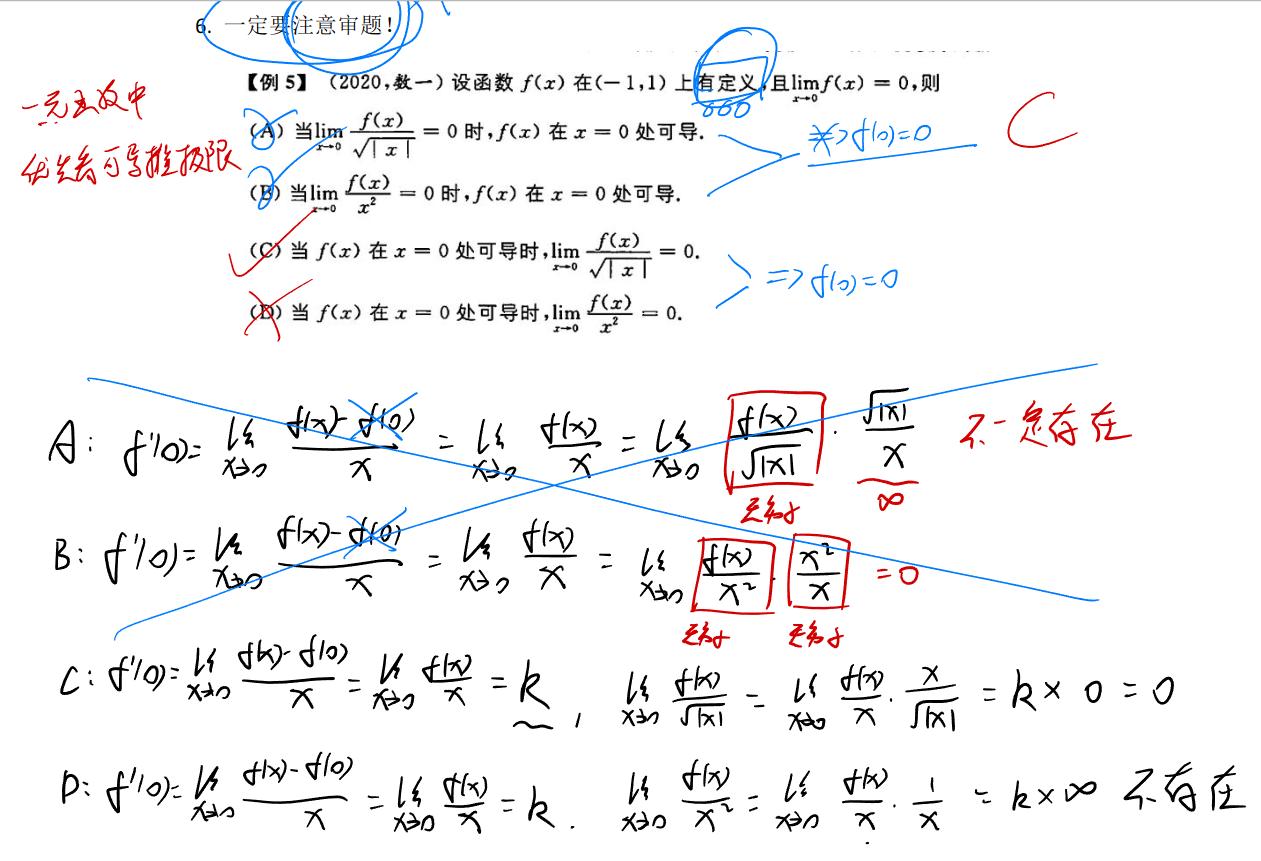 6. 一定要注意审题!
【例 5】 (2020,数一) 设函数 f(x) 在(-1,1) 上有定义,且lim_{x→0} f(x) = 0,则
一元函数中
优先看可导推极限
(A) 当lim_{x→0} f(x)/√|x| = 0 时, f(x) 在 x = 0 处可导.
(B) 当lim_{x→0} f(x)/x² = 0 时, f(x) 在 x = 0 处可导.
≠> f(0)=0
C
(C) 当 f(x) 在 x = 0 处可导时, lim_{x→0} f(x)/√|x| = 0.
(D) 当 f(x) 在 x = 0 处可导时, lim_{x→0} f(x)/x² = 0.
=> f(0)=0
A: f'(0)= lim_{x→0} (f(x)-f(0))/x = lim_{x→0} f(x)/x = lim_{x→0} f(x)/√|x| · √|x|/x 不一定存在
无穷小 ∞
B: f'(0)= lim_{x→0} (f(x)-f(0))/x = lim_{x→0} f(x)/x = lim_{x→0} f(x)/x² · x²/x = 0
无穷小 无穷小
C: f'(0)= lim_{x→0} (f(x)-f(0))/x = lim_{x→0} f(x)/x = k , lim_{x→0} f(x)/√|x| = lim_{x→0} f(x)/x · x/√|x| = k × 0 = 0
D: f'(0)= lim_{x→0} (f(x)-f(0))/x = lim_{x→0} f(x)/x = k . lim_{x→0} f(x)/x² = lim_{x→0} f(x)/x · 1/x = k × ∞ 不存在